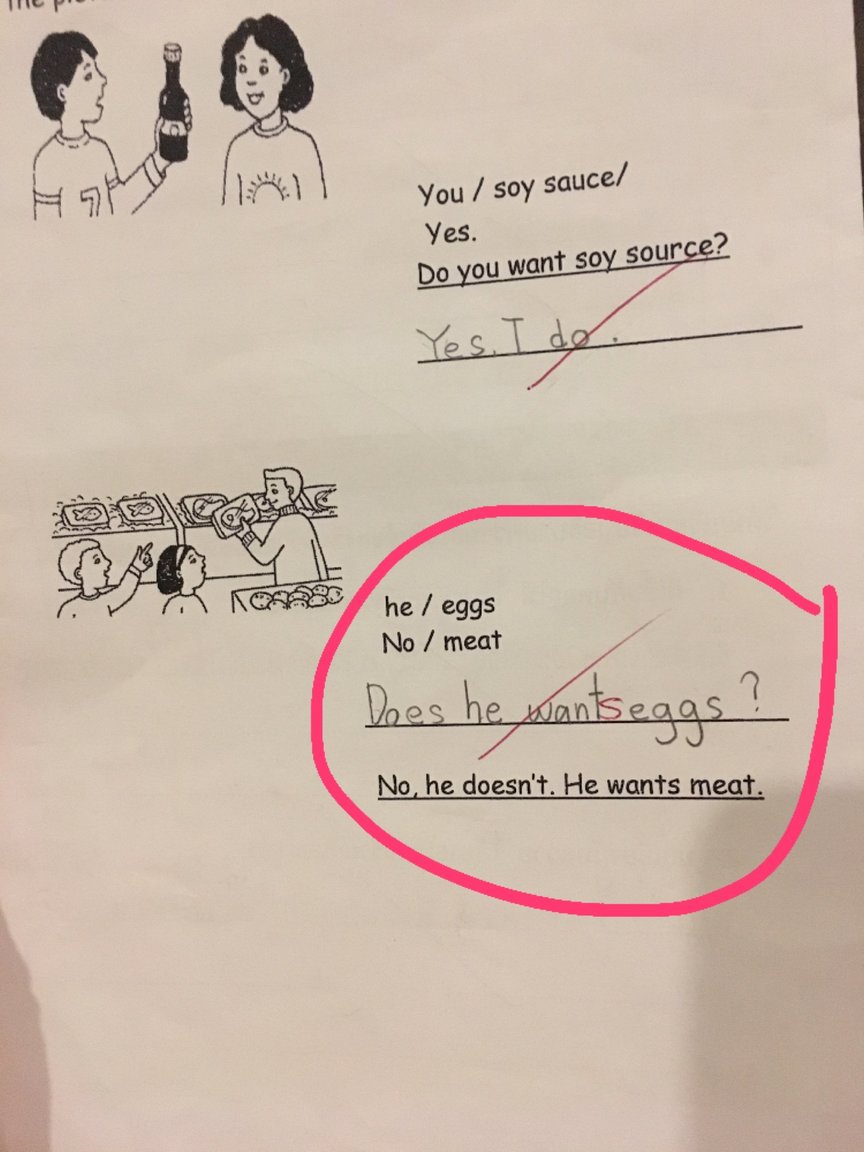 You / soy sauce/
Yes.
Do you want soy source?
Yes, I do.
7
he / eggs
No / meat
Does he wants eggs ?
No, he doesn't. He wants meat.